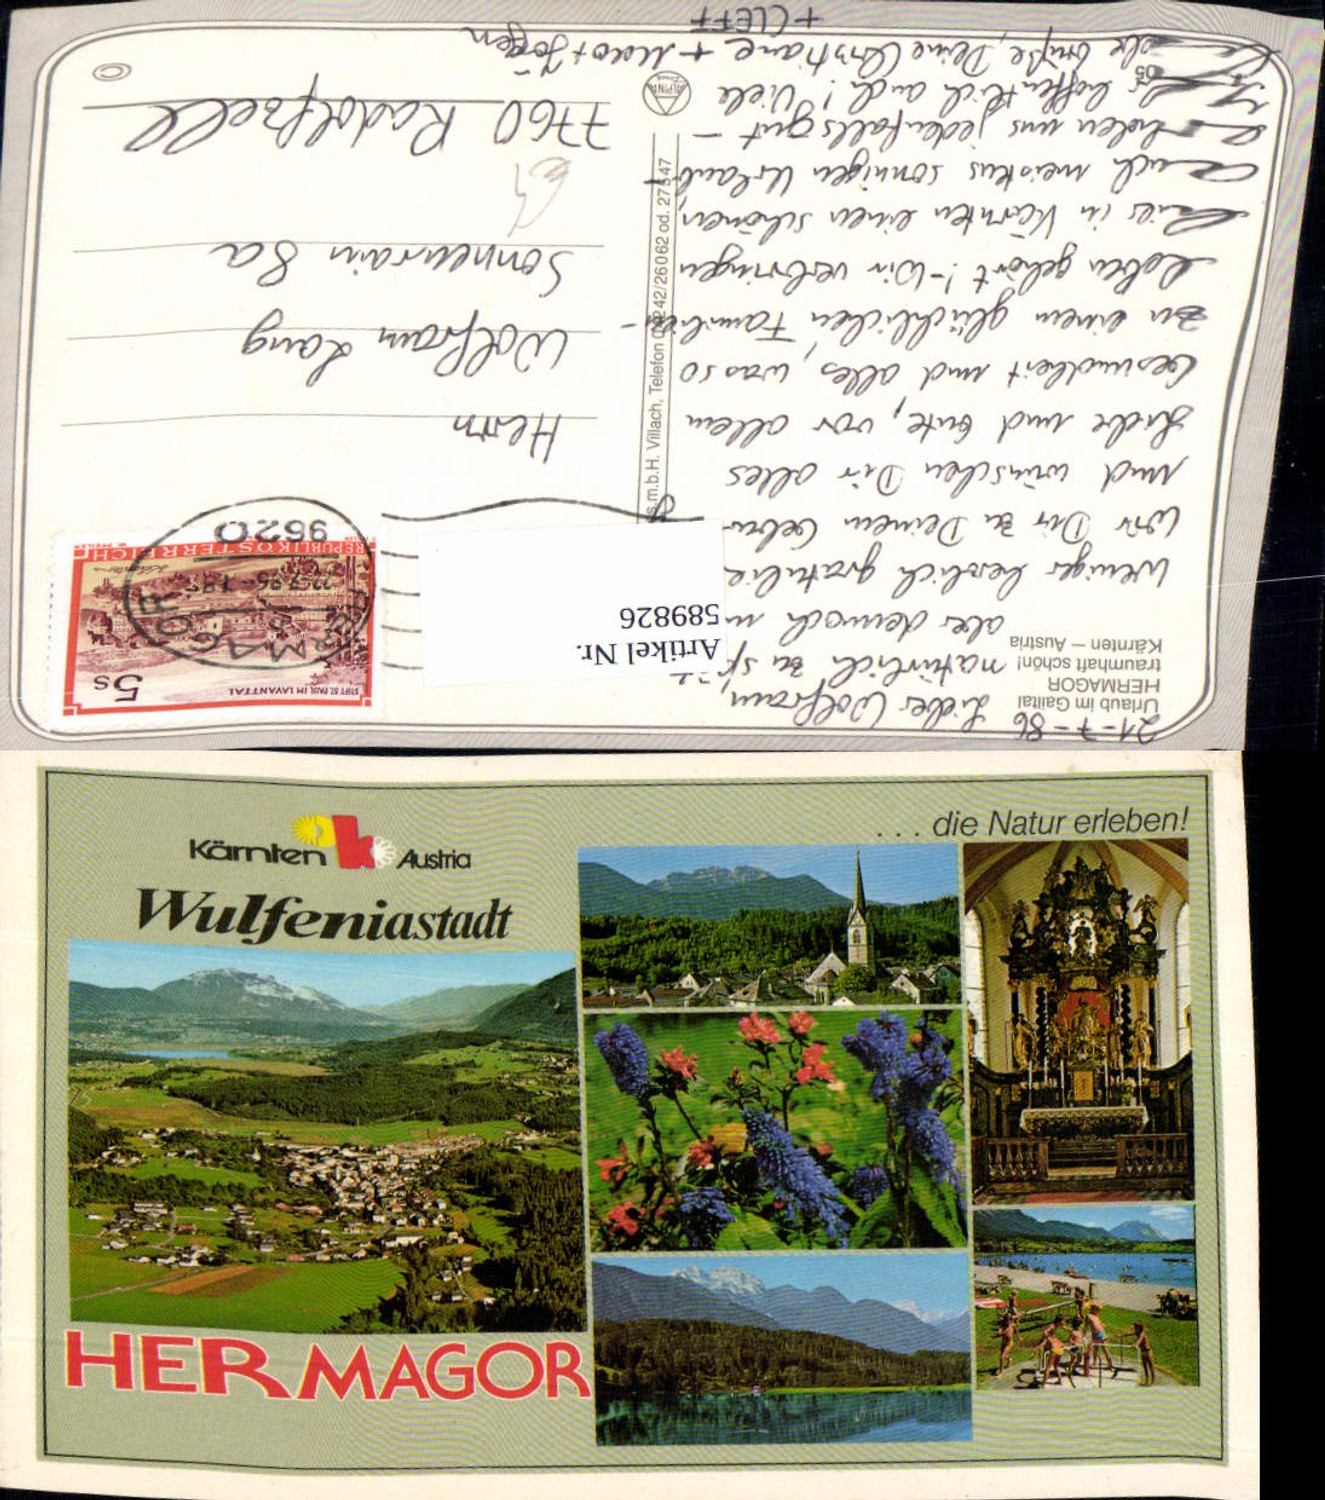 21-7-86
Urlaub im Gailtal
HERMAGOR
traumhaft schön!
Kärnten – Austria
Lieber Wolfram,
natürlich zu spät
aber dennoch
weniger herzlich gratulie
wir Dir zu Deinem Gebu
und wünschen Dir alles
Liebe und Gute, vor allem
Gesundheit und alles, was so
zu einem glücklichen Familien-
leben gehört! - Wir verbringen
hier in Kärnten einen schönen,
auch meistens sonnigen Urlaub -
holen uns jedenfalls gut -
hoffentlich auch! Viele
Grüße, Deine Christiane +
+ CLEFF
s.m.b.H. Villach, Telefon 04242/26062 od. 27547
ALPINA
Druck
Artikel Nr.
589826
STIFT ST. PAUL IM LAVANTTAL
5 S
REPUBLIK ÖSTERREICH
HERMAGOR
9620
Herrn
Wolfram Lang
Sonnenrain 8a
7760 Radolfzell
Kärnten Austria
Wulfeniastadt
. . . die Natur erleben!
HERMAGOR